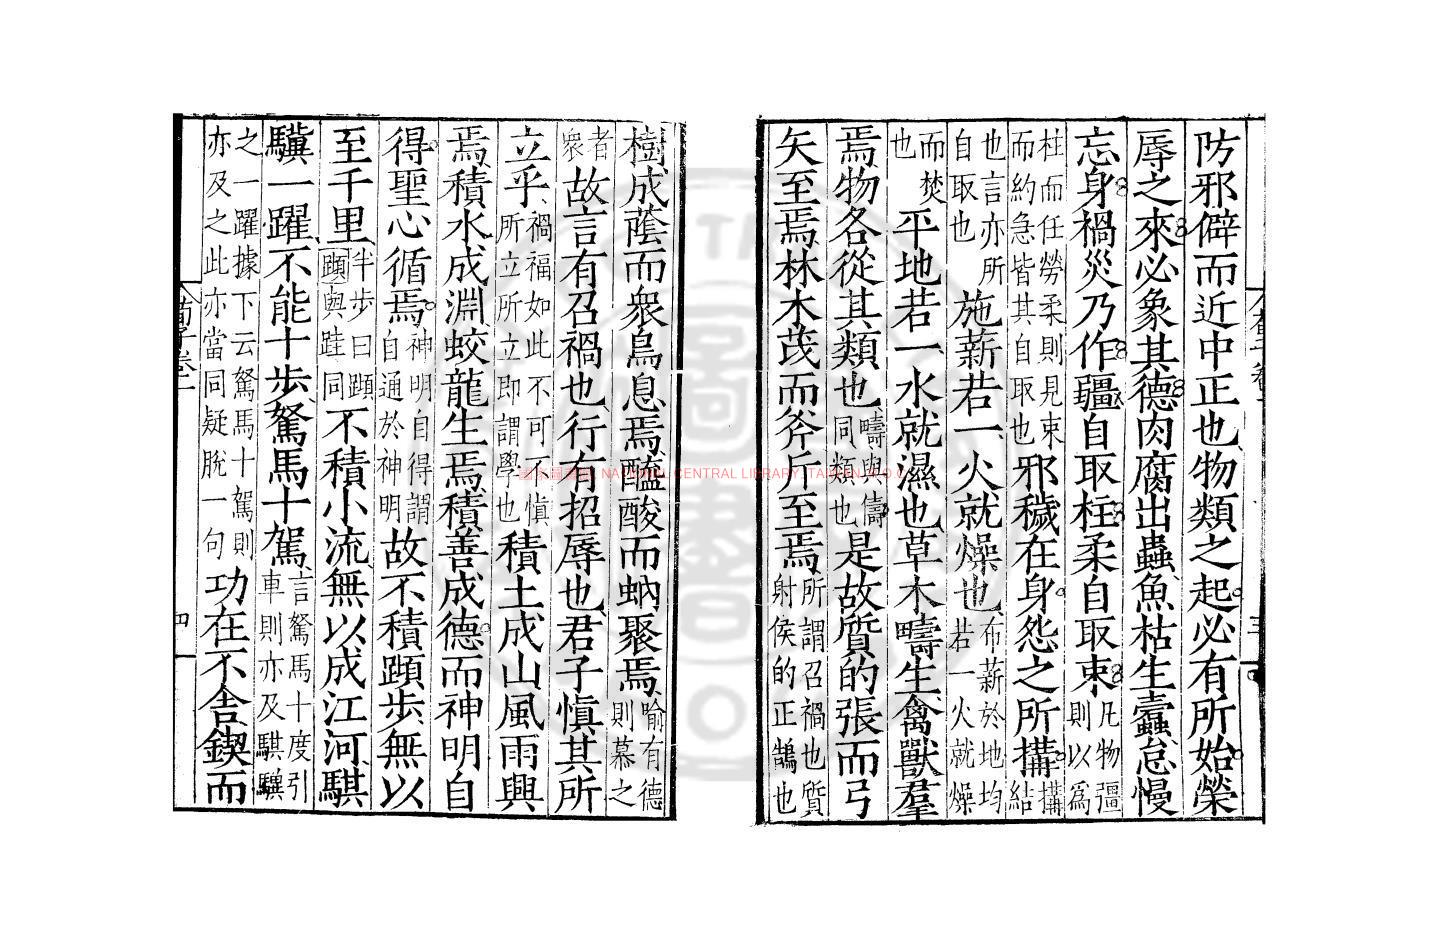 荀子卷一 三
防邪僻而近中正也物類之起必有所始榮
辱之來必象其德肉腐出蟲魚枯生蠹怠慢
忘身禍災乃作疆自取柱柔自取束凡物彊則以為
柱而任勞柔則見束而約急皆其自取也邪穢在身怨之所構構結
也言亦所自取也施薪若一火就燥也布薪於地均若一火就燥
而焚也平地若一水就濕也草木疇生禽獸羣
焉物各從其類也疇與儔同類也是故質的張而弓
矢至焉林木茂而斧斤至焉所謂召禍也質射侯的正鵠也
樹成蔭而衆鳥息焉醯酸而蜹聚焉喻有德則慕之
者衆故言有召禍也行有招辱也君子慎其所
立乎禍福如此不可不慎所立所立即謂學也積土成山風雨興
焉積水成淵蛟龍生焉積善成德而神明自
得聖心循焉神明自得謂自通於神明故不積蹞步無以
至千里半步曰蹞蹞與跬同不積小流無以成江河騏
驥一躍不能十步駑馬十駕言駑馬十度引車則亦及騏驥
之一躍據下云駑馬十駕則亦及之此亦當同疑脫一句功在不舍鍥而
荀子卷一 四
國家圖書館 NATIONAL CENTRAL LIBRARY, TAIWAN, R.O.C